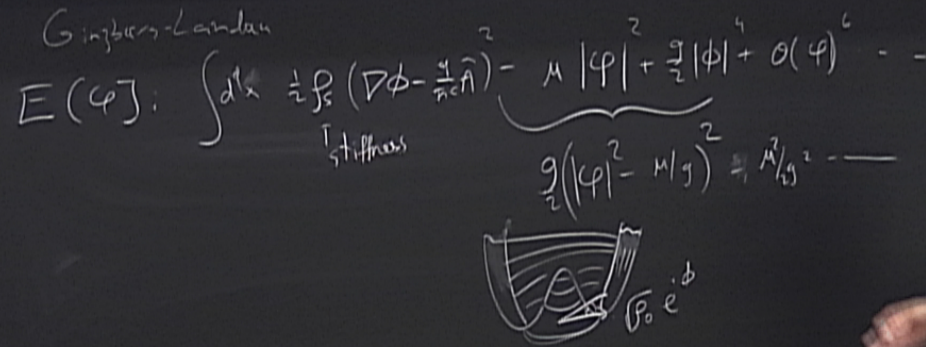 Ginzburg-Landau
E[φ]: ∫dᵈx ½ρₛ(∇ϕ-q/ħc Ā)² - μ|φ|² + g/2|ϕ|⁴ + O(φ)⁶ - -
stiffness
g/2(|φ|² - μ/g)² = μ²/2g² - —
√ρ₀ e^iϕ